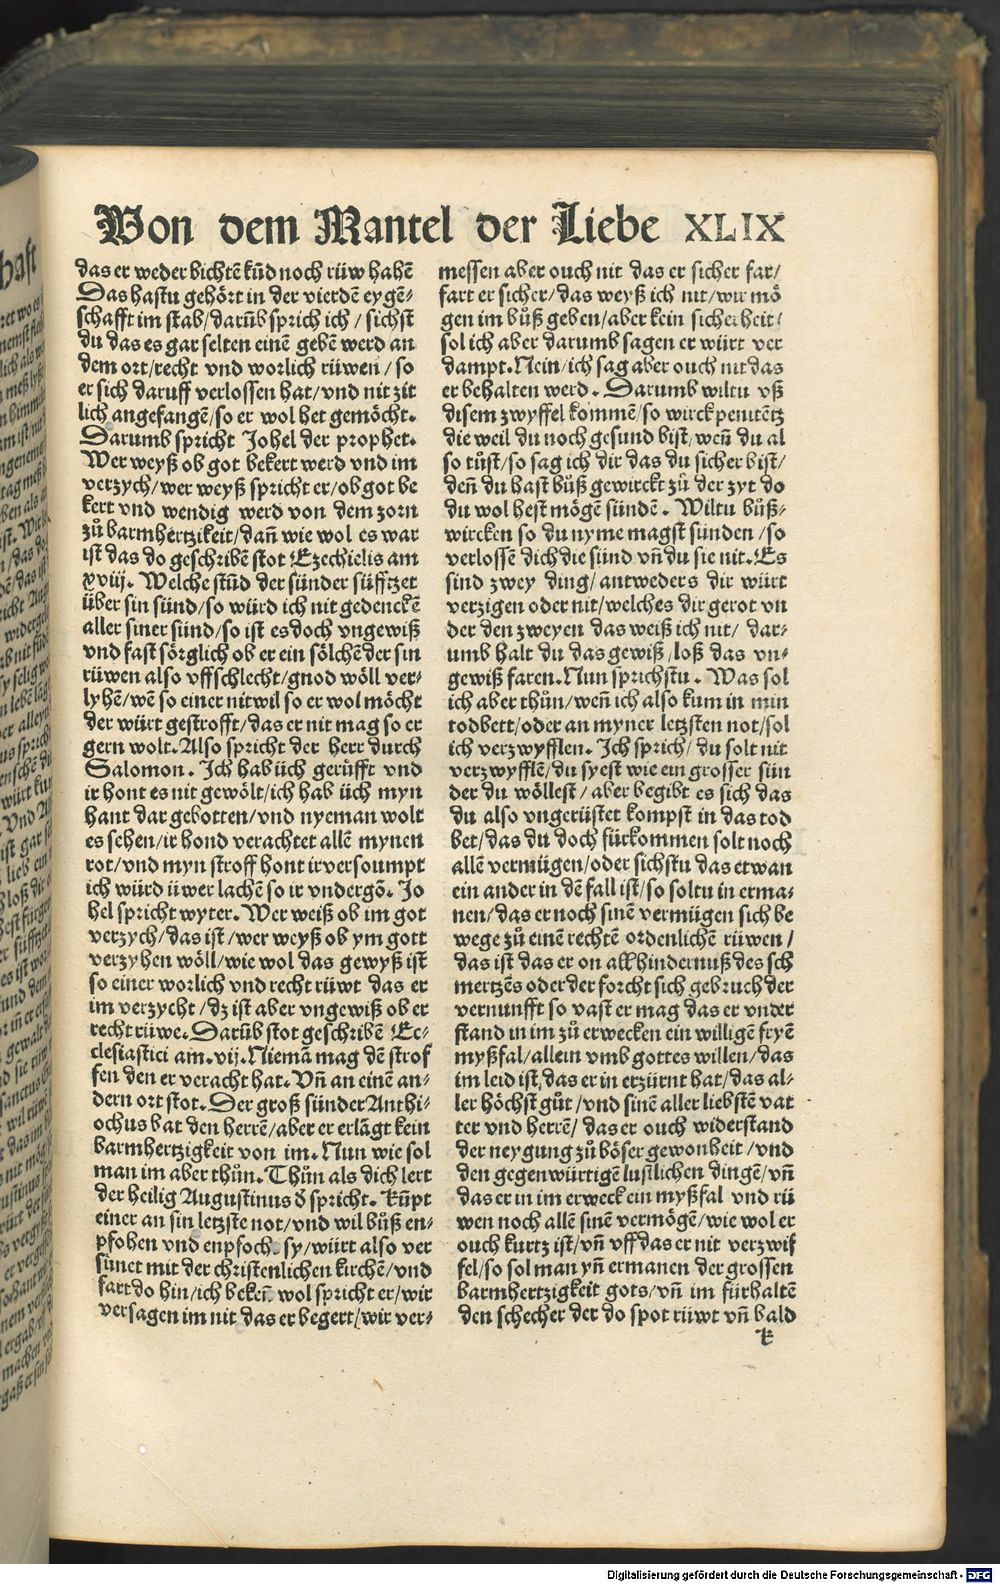 Von dem Mantel der Liebe XLIX
das er weder bichtē kūd noch rüw habē
Das hastu gehört in der vierdē eygē-
schafft im stab/darūb sprich ich/sichst
du das es gar selten einē gebē werd an
dem ort/recht vnd worlich rüwen/so
er sich daruff verlossen hat/vnd nit zit
lich angefangē/so er wol het gemöcht.
Darumb spricht Johel der prophet.
Wer weyß ob got bekert werd vnd im
verzych/wer weyß spricht er/ob got be
kert vnd wendig werd von dem zorn
zů barmhertzikeit/dañ wie wol es war
ist das do geschribē stot Ezechielis am
xviij. Welche stūd der sünder süfftzet
über sin sünd/so würd ich nit gedenckē
aller siner sünd/so ist es doch vngewiß
vnd fast sörglich ob er ein sölchē der sin
rüwen also vffschlecht/gnod wöll ver-
lyhē/wē so einer nit wil so er wol möcht
der würt gestrofft/das er nit mag so er
gern wolt. Also spricht der herr durch
Salomon. Ich hab üch gerüfft vnd
ir hont es nit gewölt/ich hab üch myn
hant dar gebotten/vnd nyeman wolt
es sehen/ir hond verachtet allē mynen
rot/vnd myn stroff hont ir versoumpt
ich würd üwer lachē so ir vndergō. Jo
hel spricht wyter. Wer weiß ob im got
verzych/das ist/wer weyß ob ym gott
verzyhen wöll/wie wol das gewyß ist
so einer worlich vnd recht rüwt das er
im verzycht/dz ist aber vngewiß ob er
recht rüwe. Darūb stot geschribē Ec-
clesiastici am.vij. Niemā mag dē strof
fen den er veracht hat. Vñ an einē an-
dern ort stot. Der groß sünder Anthi-
ochus bat den herrē/aber er erlāgt kein
barmhertzigkeit von im. Nun wie sol
man im aber thůn. Thůn als dich lert
der heilig Augustinus d̄ spricht. Kūpt
einer an sin letzste not/vnd wil bůß en-
pfohen vnd enpfoch sy/würt also ver
sünet mit der christenlichen kirchē/vnd
fart do hin/ich bekeñ wol spricht er/wir
versagen im nit das er begert/wir ver-
messen aber ouch nit das er sicher far/
fart er sicher/das weyß ich nit/wir mö
gen im bůß geben/aber kein sicherheit/
sol ich aber darumb sagen er würt ver
dampt. Nein/ich sag aber ouch nit das
er behalten werd. Darumb wiltu vß
disem zwyffel kommē/so wirck penitētz
die weil du noch gesund bist/weñ du al
so tůst/so sag ich dir das du sicher bist/
deñ du hast bůß gewirckt zů der zyt do
du wol hest mögē sündē. Wiltu bůß-
wircken so du nyme magst sunden/so
verlossē dich die sünd vñ du sie nit. Es
sind zwey ding/antweders dir würt
verzigen oder nit/welches dir gerot vn
der den zweyen das weiß ich nit/dar-
umb halt du das gewiß/loß das vn-
gewiß faren. Nun sprichstu. Was sol
ich aber thůn/weñ ich also kum in min
todbett/oder an myner letzsten not/sol
ich verzwyfflen. Ich sprich/du solt nit
verzwyfflē/du syest wie ein grosser sün
der du wöllest/aber begibt es sich das
du also vngerüstet kompst in das tod
bet/das du doch fürkommen solt noch
allē vermügen/oder sichstu das etwan
ein ander in dē fall ist/so soltu in erma-
nen/das er noch sinē vermügen sich be
wege zů einē rechtē ordenlichē rüwen/
das ist das er on all hindernuß des sch
mertzēs oder der forcht sich gebruch der
vernunfft so vast er mag das er vnder
stand in im zů erwecken ein willigē fryē
myßfal/allein vmb gottes willen/das
im leid ist das er in erzürnt hat/das al-
ler höchst gůt/vnd sinē aller liebstē vat
ter vnd herrē/das er ouch widerstand
der neygung zů böser gewonheit/vnd
den gegenwürtigē lustlichen dingē/vñ
das er in im erweck ein myßfal vnd rü
wen noch allē sinē vermögē/wie wol er
ouch kurtz ist/vñ vff das er nit verzwif
fel/so sol man yñ ermanen der grossen
barmhertzigkeit gots/vñ im fürhaltē
den schecher der do spot rüwt vñ bald
k
Digitalisierung gefördert durch die Deutsche Forschungsgemeinschaft - DFG